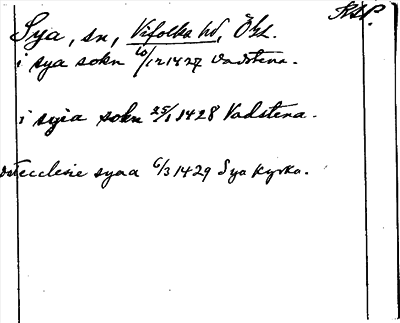 Sya, sn, Vifolka hd, Ögl.
i sya sokn 10/12 1427 Vadstena.
i syia sokn 25/1 1428 Vadstena.
ecclesie syaa 6/3 1429 Sya kyrka.